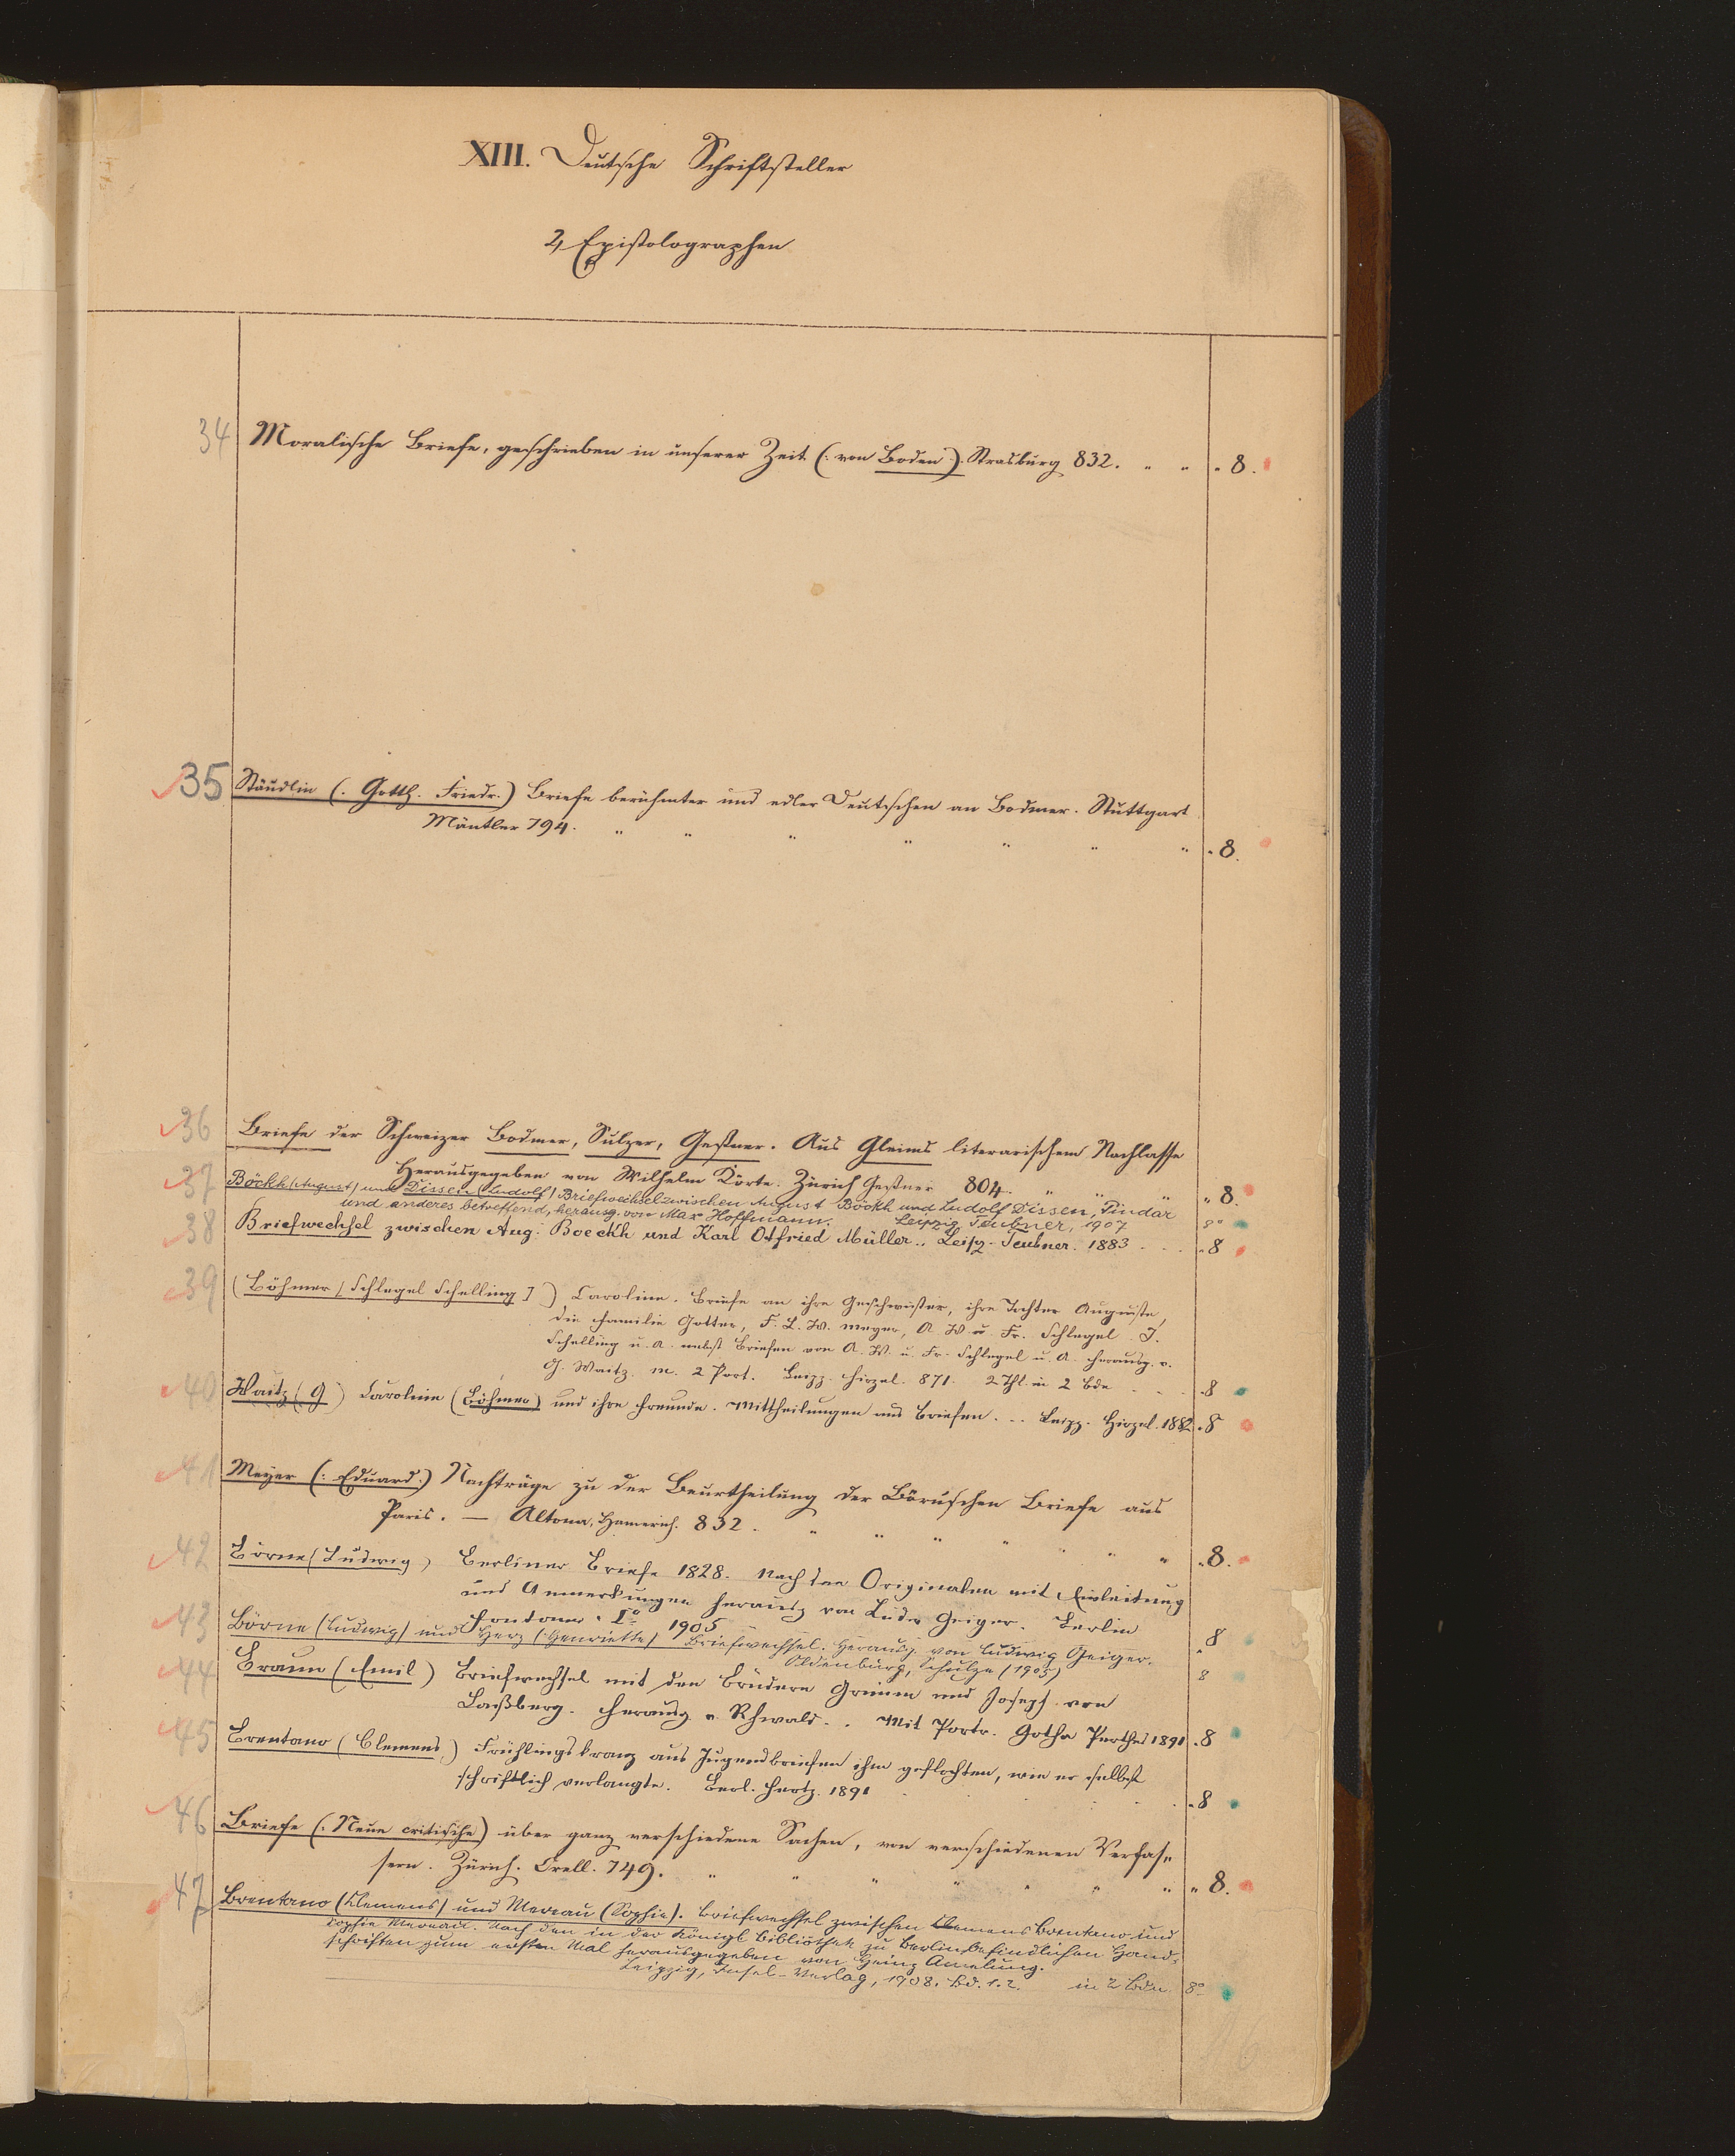 XIII. Deutsche Schriftsteller
2, Epistolographen
34 Moralische Briefe, geschrieben in unserer Zeit (: von Boden :). Strasburg 832. " " " 8.
35 Stäudlin (: Gotth. Friedr.) Briefe berühmter und edler Deutschen an Bodmer. Stuttgart
Mäntler 794. " " " " " " " " 8.
36 Briefe der Schweizer Bodmer, Sulzer, Geßner. Aus Gleims literarischem Nachlasse
Herausgegeben von Wilhelm Körte. Zürich Geßner 804. " " " " 8.
37 Böckh (August) und Dissen (Ludolf) Briefwechsel zwischen August Böckh und Ludolf Dissen, Pindar
und anderes betreffend, herausg. von Max Hoffmann. Leipzig, Teubner, 1907 8°
38 Briefwechsel zwischen Aug. Boeckh und Karl Otfried Müller.. Leipz. Teubner. 1883 . . . " 8
39 (Böhmer [Schlegel Schelling]) Caroline. Briefe an ihre Geschwister, ihre Tochter Auguste,
die Familie Gotter, F. L. W. Meyer, A. W. u. Fr. Schlegel. J.
Schelling u. A. nebst Briefen von A. W. u. Fr. Schlegel u. A. herausg. v.
G. Waitz. m. 2 Port. Leipz. Hirzel. 871. 2 Thl. in 2 Bde . . . . 8
40 Waitz (G) Caroline (Böhmer) und ihre Freunde. Mittheilungen aus Briefen. .. Leipz. Hirzel. 1882 " 8
41 Meyer (: Eduard.) Nachträge zu der Beurtheilung der Börne'schen Briefe aus
Paris. — Altona, Hamerich. 832. " " " " " " " " 8.
42 Börne (Ludwig) Berliner Briefe 1828. Nach den Originalen mit Einleitung
und Anmerkungen herausg von Ludw Geiger. Berlin
Fontane. 1905 " 8
43 Börne (Ludwig) und Herz (Henriette) Briefwechsel. Herausg. von Ludwig Geiger.
Oldenburg, Schulze (1905) 8
44 Braun (Emil) Briefwechsel mit den Brüdern Grimm und Joseph von
Laßberg. Herausg. v. Ehwald. . Mit Portr. Gotha Perthes 1891 . 8
45 Brentano (Clemens) Frühlingskranz aus Jugendbriefen ihm geflochten, wie er selbst
schriftlich verlangte. Berl. Hertz. 1891 . . . . " 8
46 Briefe (: Neue critische) über ganz verschiedene Sachen, von verschiedenen Verfas=
sern. Zürich. Orell. 749. " " " " " " " " 8.
47 Brentano (Clemens) und Mereau (Sophie). Briefwechsel zwischen Clemens Brentano und
Sophie Mereau. Nach den in der Königl Bibliothek zu Berlin befindlichen Hand=
schriften zum ersten Mal herausgegeben von Heinz Amelung.
Leipzig, Insel-Verlag, 1908. Bd. 1. 2. in 2 Bdn 8°